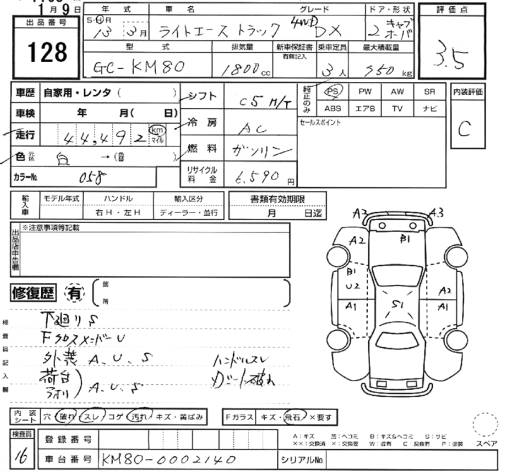 1月9日
出品番号 128
年式 S・H・R 13年 3月
車名 ライトエーストラック
グレード 4WD DX
ドア・形状 2 キャブオーバ
評価点 3.5
型式 GC-KM80
排気量 1800cc
新車保証書 有側記入
乗車定員 3人
最大積載量 850kg
車歴 自家用・レンタ( )
シフト C5 M/T
純正のみ PS PW AW SR
ABS エアB TV ナビ
内装評価 C
車検 年 月( 日)
冷房 AC
セールスポイント
走行 44,492 km マイル
燃料 ガソリン
色 白 →( )
カラーNo 058
リサイクル料金 6,590円
輸入車 モデル年式 ハンドル 輸入区分
年 右H・左H ディーラー・並行
書類有効期限
月 日迄
※注意事項等記載
修復歴 有
A2 A3
A2 B1
B1
U2 A2 A2
S1
A1 A1
A1 A1
下廻りS
Fクロスメンバー U
外装 A、U、S ハンドルスレ
荷台 アオリ A、U、S シート破れ
内装 シート 穴 破れ スレ コゲ 汚れ キズ・黄ばみ
Fガラス キズ・飛石・×要す
検査員 16
登録番号
車台番号 KM80-0002140
シリアルNo.
A:キズ U:ヘコミ B:キズ&ヘコミ S:サビ
スペア